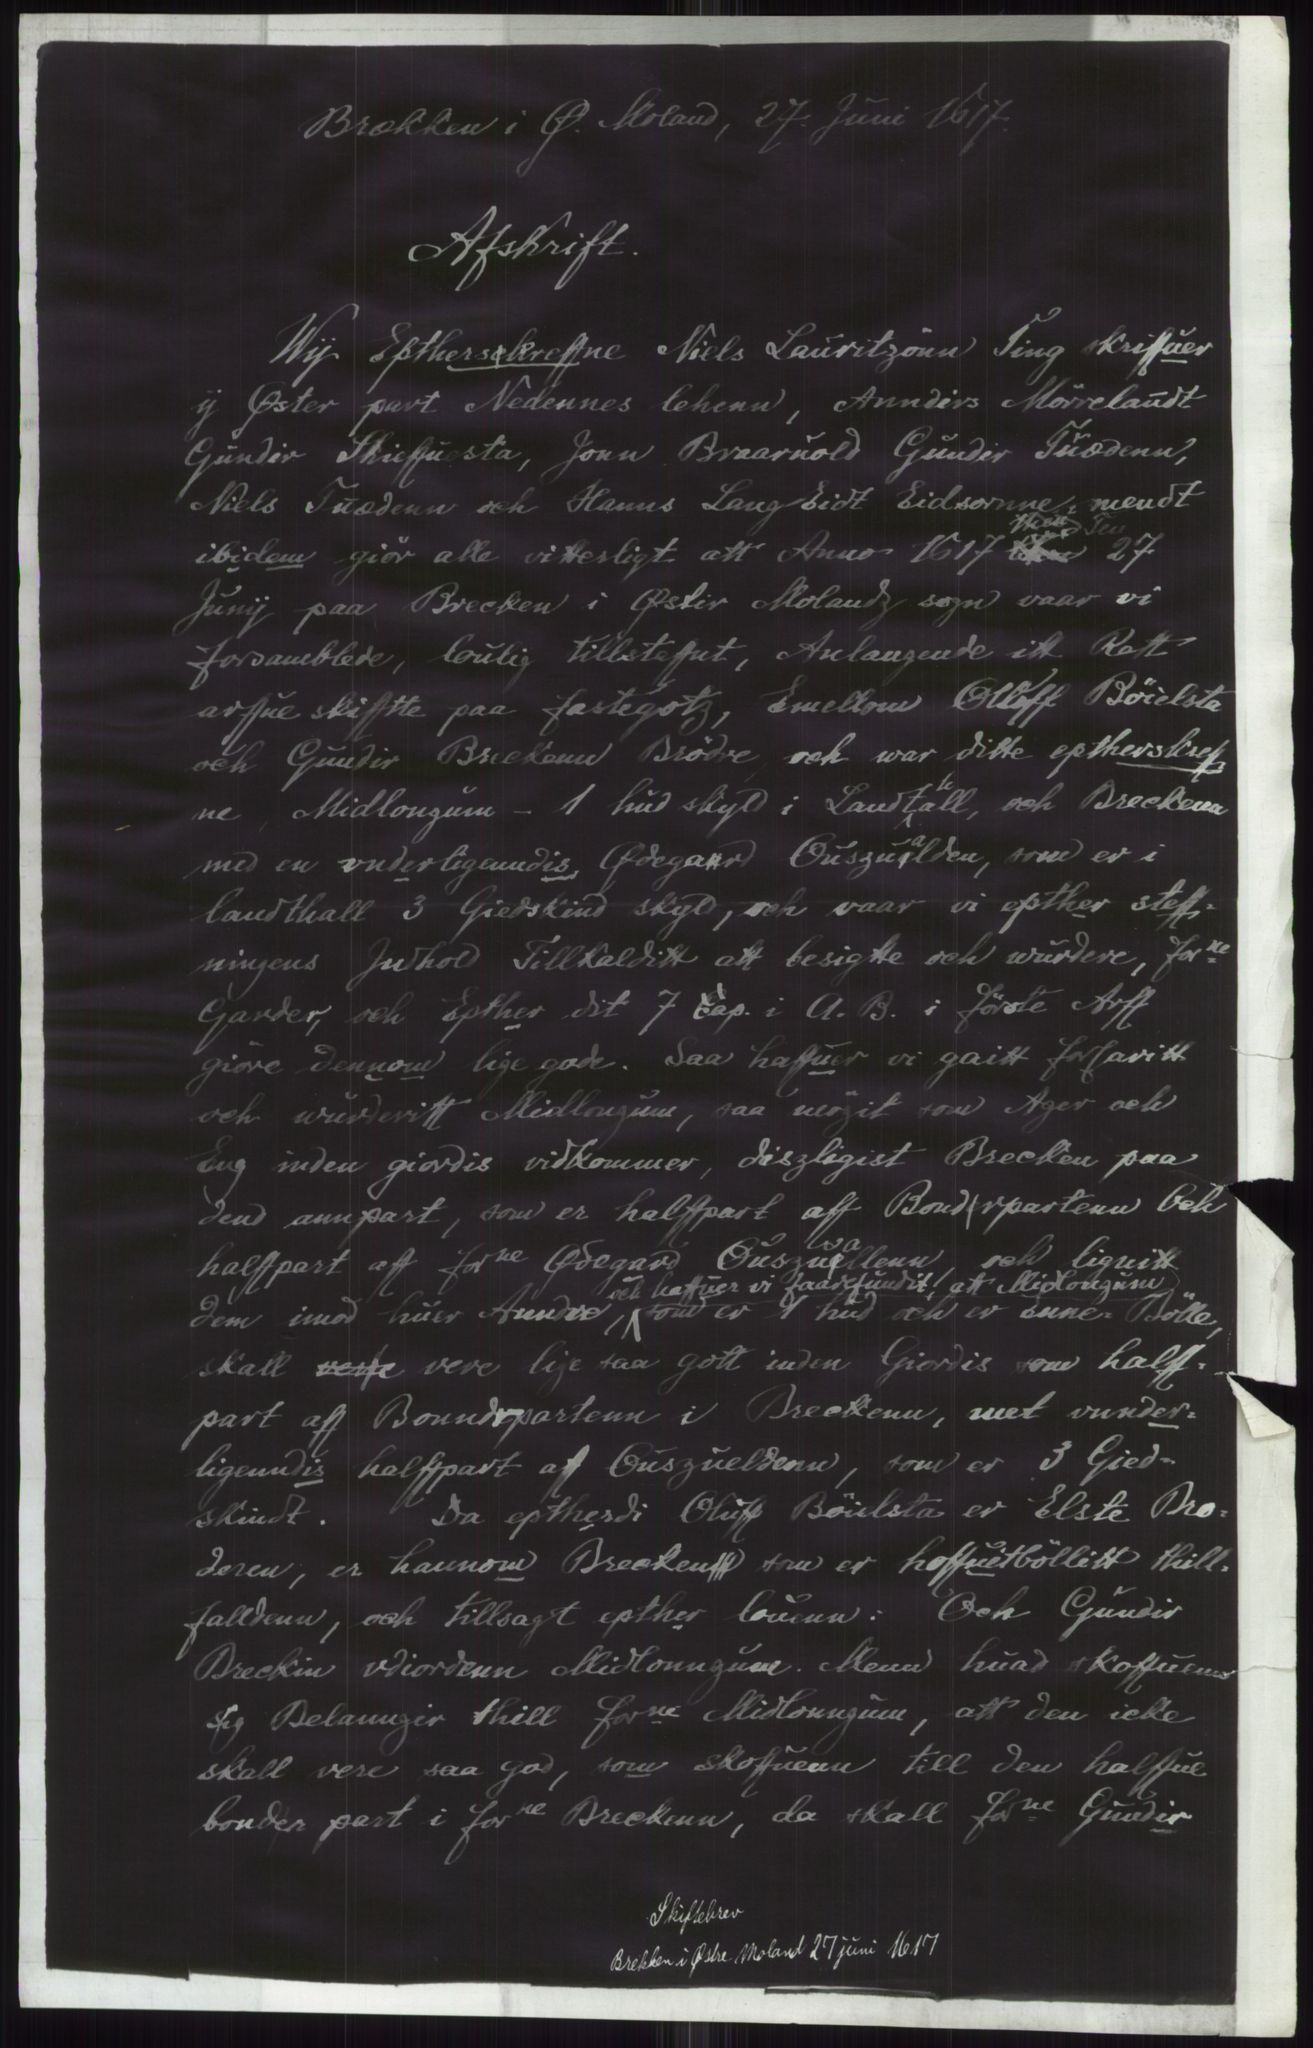 Brækken i Ø. Moland, 27. Juni 1617.
Afskrift.
Wij Epthersckreffne Niels Lauritzönn Ting skriffuer
ÿ Øster part Nedennes lehenn, Anndirs Mörrelaudt
Gundir Skieffuesta, Jonn Braaruold Gundir Tuædenn,
Niels Tuædenn och Hanns Lang Eidt Eidsornne mendt
ibidem giör alle vitterligt att Anno 1617 thend 27
Junÿ paa Brecken i Østir Molandz sogn vaar vi
forsamblede, loulig tillsteffnt, Anlangende itt Rett
arffue skiffte paa fastegotz, Emellom Oluff Böielsta
och Gundir Breckenn Brödre, och war ditte eptherskreff
ne, Midlongum - 1 hud skyld i Landthall, och Breckenn
med en vnderligenndis Ødegaard Ouszualden, som er i
landthall 3 Giedskind skyld, och vaar vi epther steff-
ningens Indhold Tillkalditt att besigtte och wurdere, forne
Garder, och Epther dit 7 Cap. i A. B. i förste Arff
giöre dennom lige gode. Saa haffuer vi gaitt forfaritt
och wurderitt Midlongum, saa mögit som Ager och
Eng inden giordis vidkommer, disligist Brecken paa
dend annpart, som er halffpart aff Bondrpartenn Och
halffpart aff forne Ødegard Ouszuallenn, och lignitt
dem imod huer Anndre, och haffuer vi faarefundit, att Midlongum
som er 1 hud och er enne Bölle,
skall vere lige saa gott inden Giordis som halff-
part aff Bonndrpartenn i Breckenn, met vnnder-
ligenndis halffpart aff Ouszueldenn, som er 3 Gied-
skindt. Da eptherdi Oluff Böielsta er Elste Bro-
deren, er hannom Breckenn som er hoffuetböllitt thill-
falldenn, och tillsagt epther louenn. Och Gundir
Breckin vdiordenn Midlonngum. Menn huad skoffuenn
sig Belanngir thill forne Midlonngum, att den icke
skall vere saa god, som skoffuenn till den halffue
bonder part i forne Breckenn, da skall forne Gundir
Skiftebrev
Brekken i Østre Moland 27 juni 1617